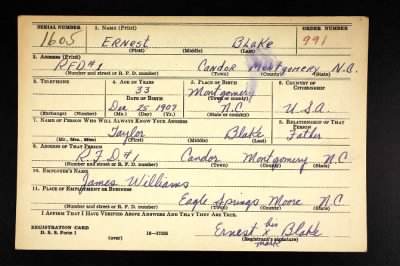 SERIAL NUMBER 1. NAME (Print) ORDER NUMBER
1605 ERNEST BLAKE 991
(First) (Middle) (Last)
2. ADDRESS (Print)
R.F.D.#1 Candor Montgomery N.C.
(Number and street or R. F. D. number) (Town) (County) (State)
3. TELEPHONE 4. AGE IN YEARS 5. PLACE OF BIRTH 6. COUNTRY OF CITIZENSHIP
33 Montgomery
DATE OF BIRTH (Town or county)
Dec 25 1907 N.C U.S.A.
(Exchange) (Number) (Mo.) (Day) (Yr.) (State or country)
7. NAME OF PERSON WHO WILL ALWAYS KNOW YOUR ADDRESS 8. RELATIONSHIP OF THAT PERSON
Taylor Blake Father
(Mr., Mrs., Miss) (First) (Middle) (Last)
9. ADDRESS OF THAT PERSON
R.F.D#1 Candor Montgomery N.C
(Number and street or R. F. D. number) (Town) (County) (State)
10. EMPLOYER'S NAME
James Williams
11. PLACE OF EMPLOYMENT OR BUSINESS
Eagle Springs Moore N.C.
(Number and street or R. F. D. number) (Town) (County) (State)
I AFFIRM THAT I HAVE VERIFIED ABOVE ANSWERS AND THAT THEY ARE TRUE.
REGISTRATION CARD
D. S. S. Form 1 (over) 16—17105
Ernest his x mark Blake
(Registrant's signature)